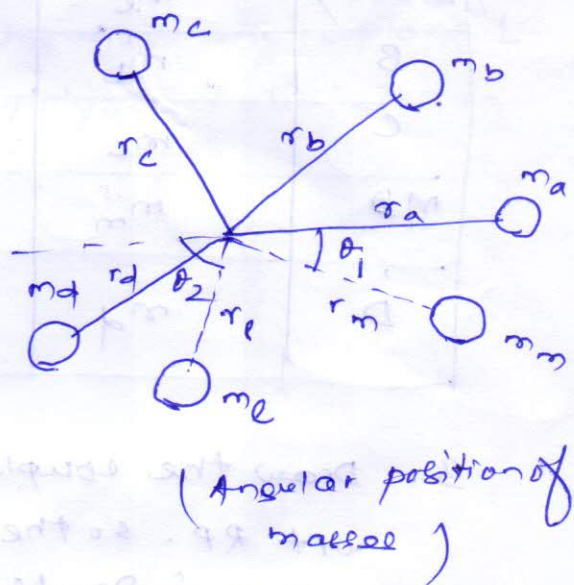 mc
mb
rc
rb
ma
ra
θ1
rd
md
θ2
rm
re
mm
me
(Angular position of
masses)